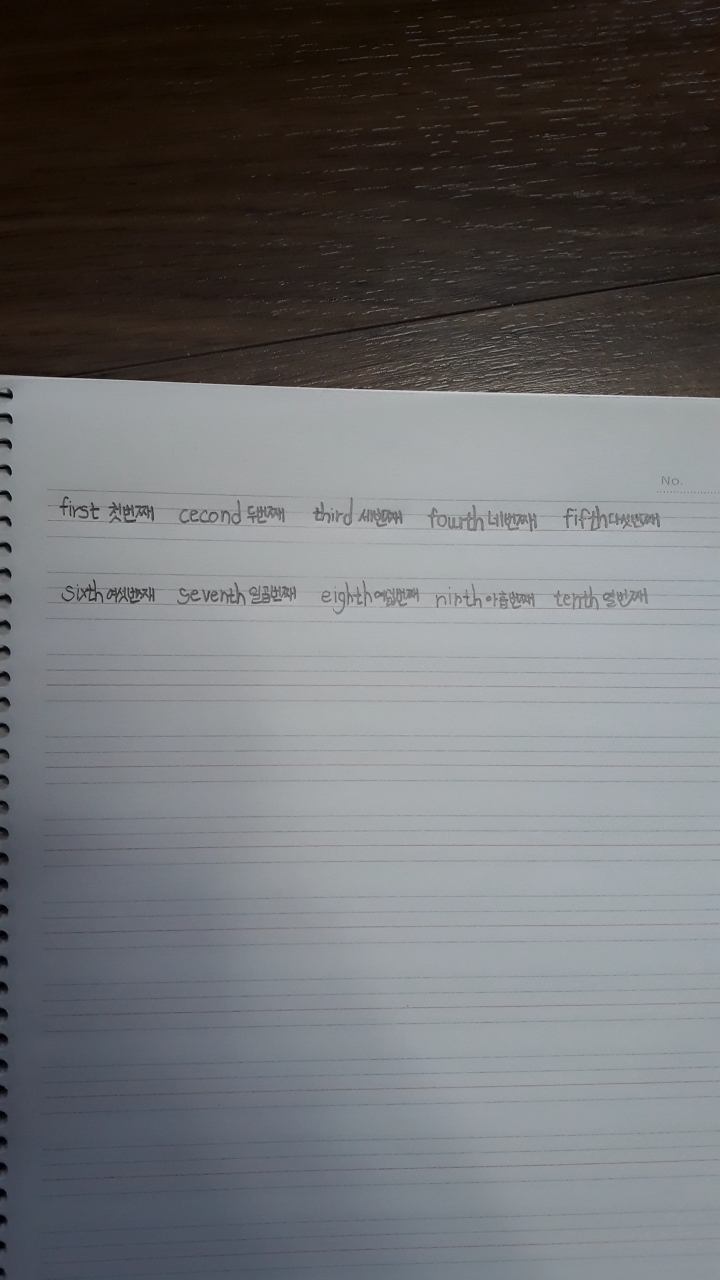 No.
first 첫번째 cecond 두번째 third 세번째 fourth 네번째 fifth 다섯번째
sixth 여섯번째 seventh 일곱번째 eighth 여덟번째 ninth 아홉번째 tenth 열번째